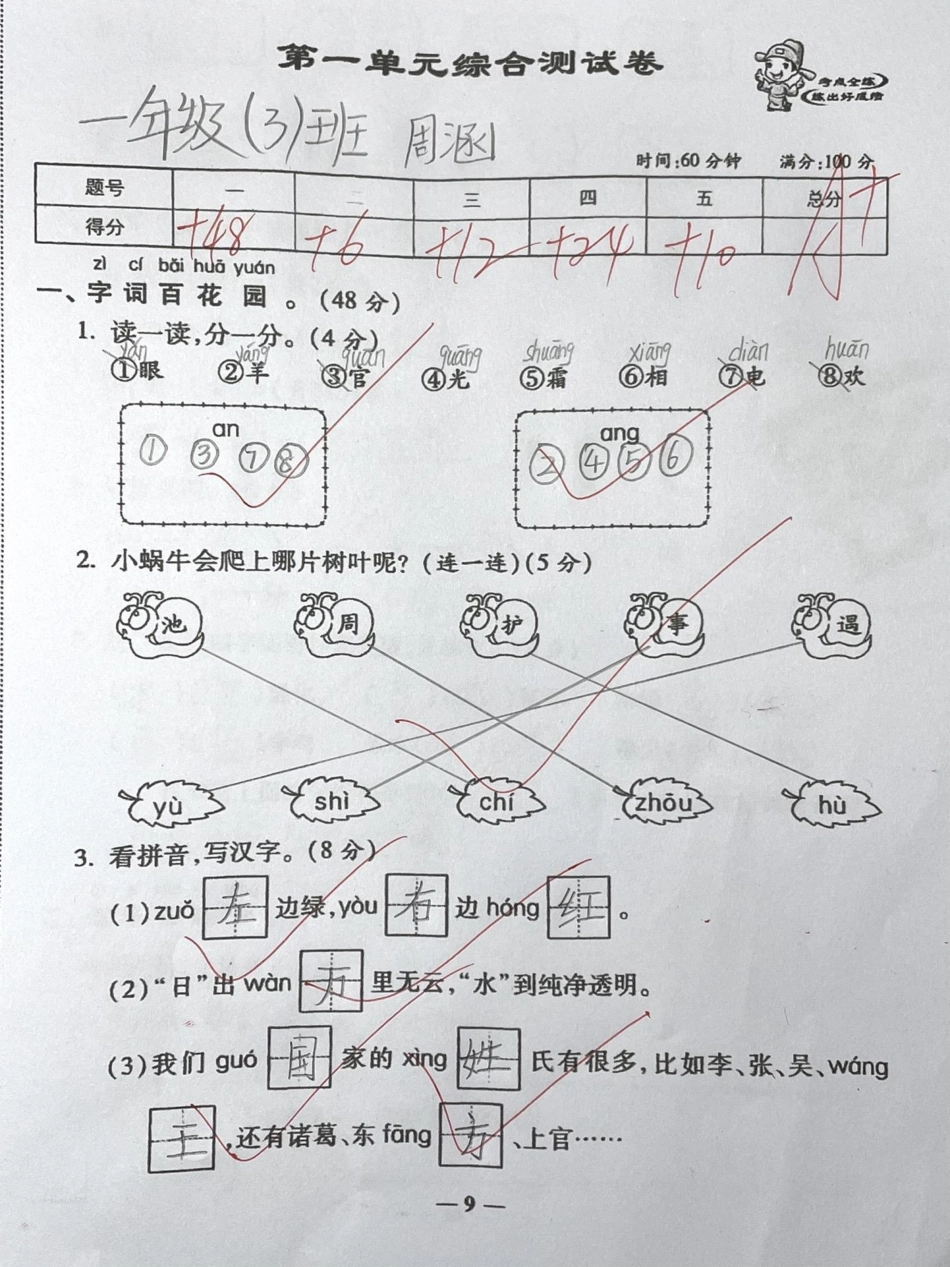 第一单元综合测试卷
考点全练
练出好成绩
一年级(3)班 周涵
时间:60分钟 满分:100分
题号 一 二 三 四 五 总分
得分 +48 +6 +12 +24 +10
zì cí bǎi huā yuán
一、字词百花园。(48分)
1. 读一读,分一分。(4分)
yǎn yáng guān guāng shuāng xiāng diàn huān
①眼 ②羊 ③官 ④光 ⑤霜 ⑥相 ⑦电 ⑧欢
an ang
① ③ ⑦ ⑧ ② ④ ⑤ ⑥
2. 小蜗牛会爬上哪片树叶呢?(连一连)(5分)
池 周 护 事 遇
yù shì chí zhōu hù
3. 看拼音,写汉字。(8分)
(1)zuǒ 左 边绿,yòu 右 边 hóng 红 。
(2)“日”出 wàn 万 里无云,“水”到纯净透明。
(3)我们 guó 国 家的 xìng 姓 氏有很多,比如李、张、吴、wáng
王 ,还有诸葛、东 fāng 方 、上官……
— 9 —